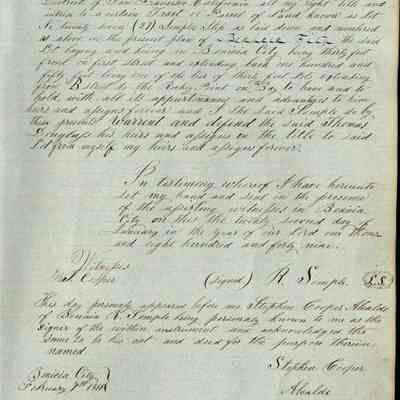 District of San Francisco California all my right title and
intrest to a certain Tract or Parcel of Land known as Lot
No twenty seven (27) Semples Slip as laid down and numbered
as above on the present plan of Benicia City the said
Lot laying and being in Benicia City being thirty feet
front on first street and extending back one hundred and
fifty feet being one of the tier of thirty feet Lots extending
from B street to the Rocky Point on Bay to have and to
hold with all its appurtenances and advantages to him
heirs and assigns forever and I the said Semple do by
these presents Warrent and defend the said Thomas
Douglass his heirs and assigns in the title to said
Lot from myself my heirs and assigns forever.
In testimony whereof I have hereunto
set my hand and seal in the presence
of the assisting witnesses in Benicia
City on this the twenty second day of
January in the year of our Lord one thous
and eight hundred and forty nine.
Witnesses
Cooper (signed) R. Semple. L.S.
This day personaly appeared before me Stephen Cooper Alcalde
of Benicia R. Semple being personaly known to me as the
signer of the within instrument and acknowledged the
same to be his act and deed for the purpose therein
named
Stephen Cooper
Benicia City
February
Alcalde